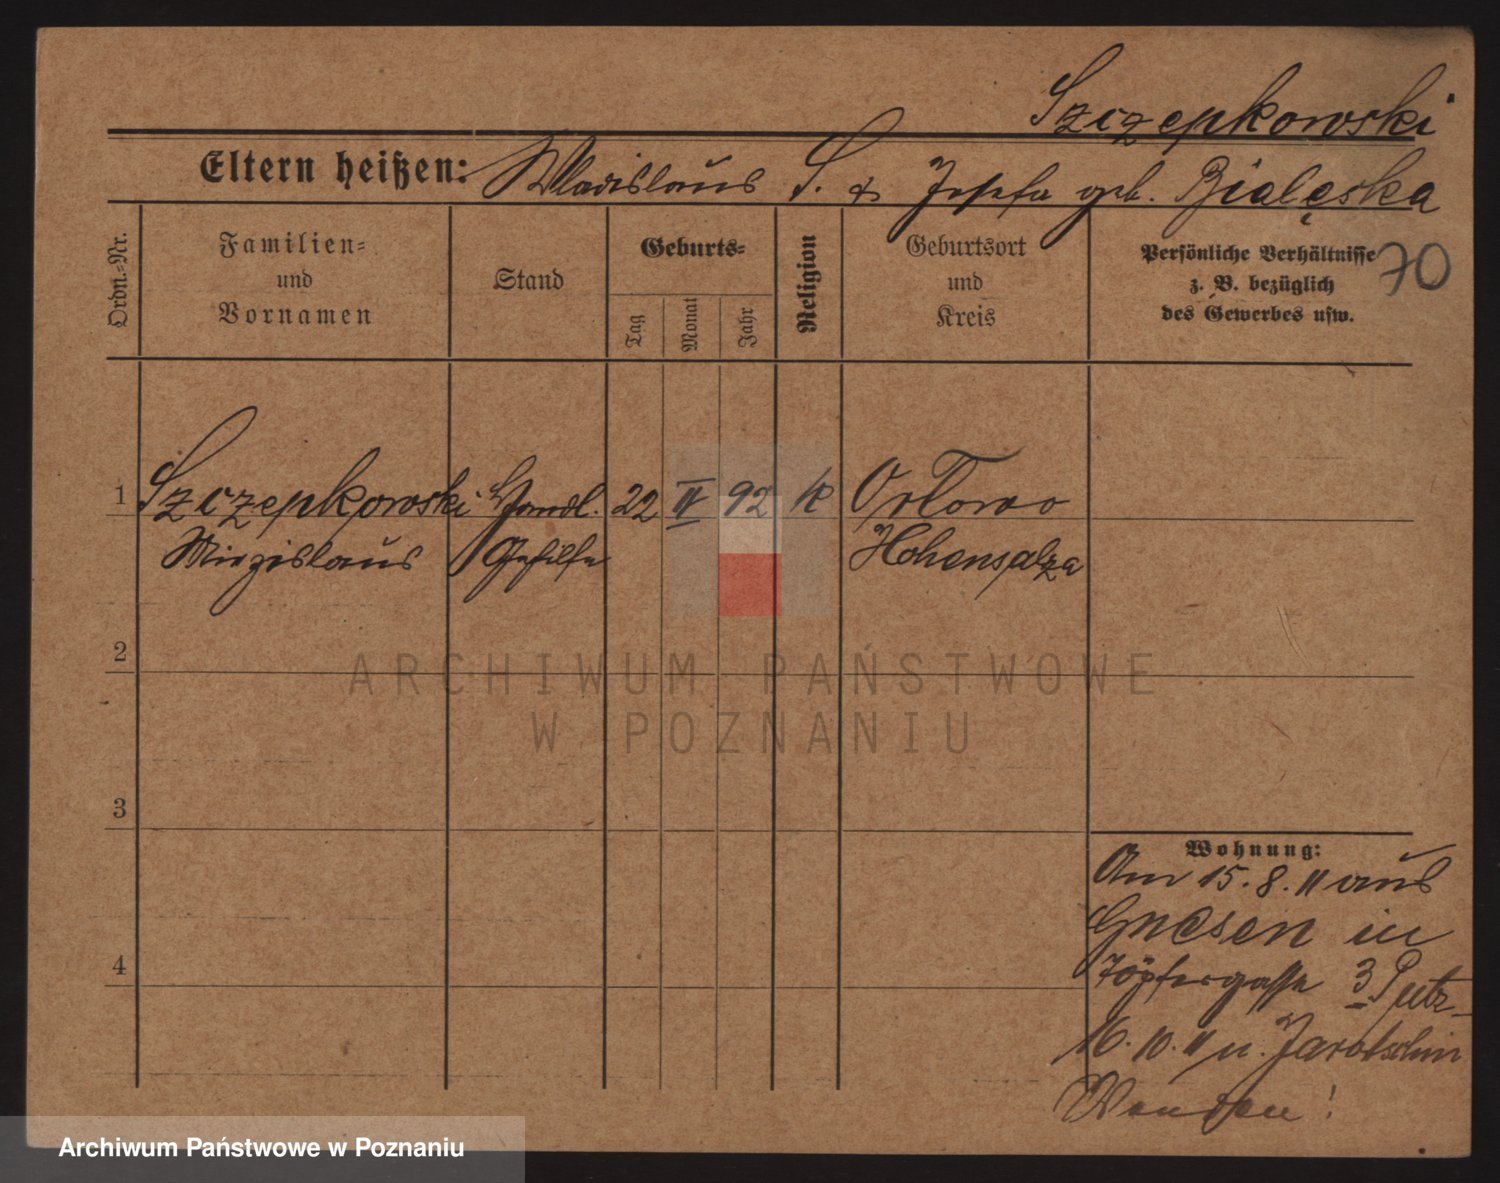 Szczepkowski
Eltern heißen: Wladislaus S. & Josefa geb. Bialęska
Ordn.=Nr.
Familien=
und
Vornamen
Stand
Geburts=
Tag
Monat
Jahr
Religion
Geburtsort
und
Kreis
Persönliche Verhältnisse
z. B. bezüglich
des Gewerbes usw.
70
1 Szczepkowski Handl. 22 II 92 K Orlowo
Miezislaus Gehilfe Hohensalza
2
ARCHIWUM PAŃSTWOWE
W POZNANIU
3
Wohnung:
Am 15.8.11 aus
Gnesen in
4
Töpfergasse 3
16.10.11 n. Jarotschin
Archiwum Państwowe w Poznaniu